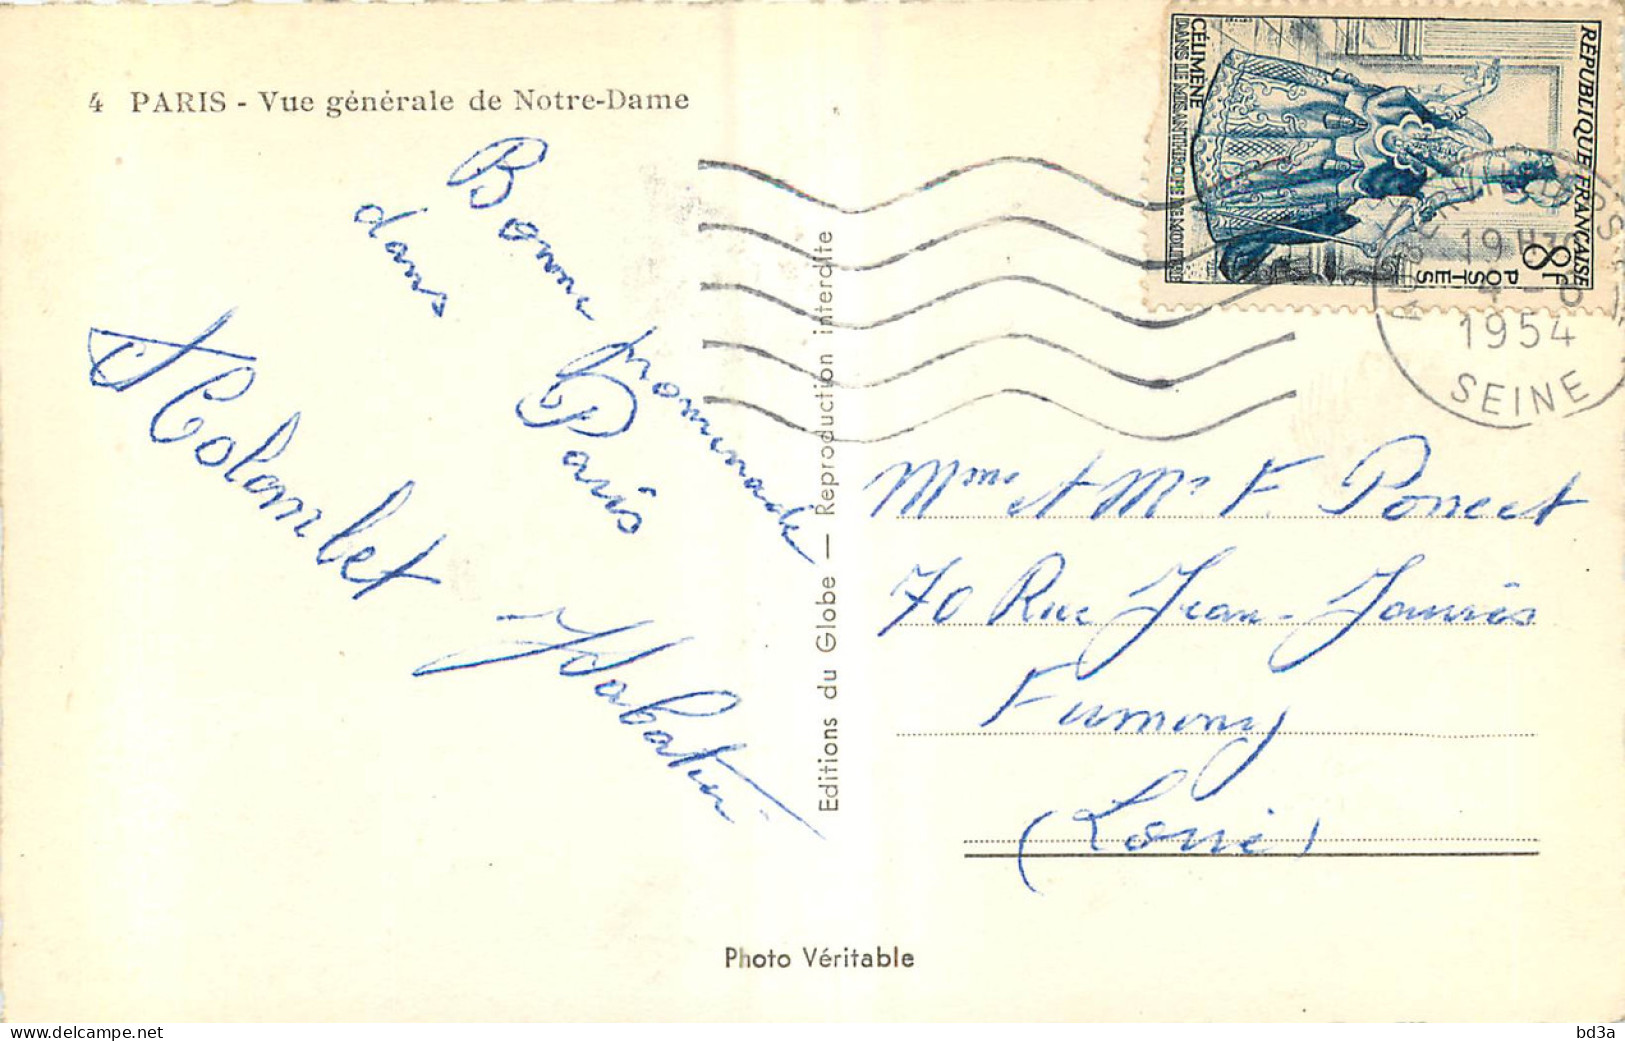 4 PARIS - Vue générale de Notre-Dame
Bonne promenade
dans Paris
Colombet
Editions du Globe — Reproduction interdite
RÉPUBLIQUE FRANÇAISE
8F
POSTES
CÉLIMÈNE
DANS LE MISANTHROPE DE MOLIÈRE
19H
1954
SEINE
Mme et Mr F. Poncet
70 Rue Jean-Jaurès
Fumony
(Loire)
Photo Véritable
www.delcampe.net
bd3a